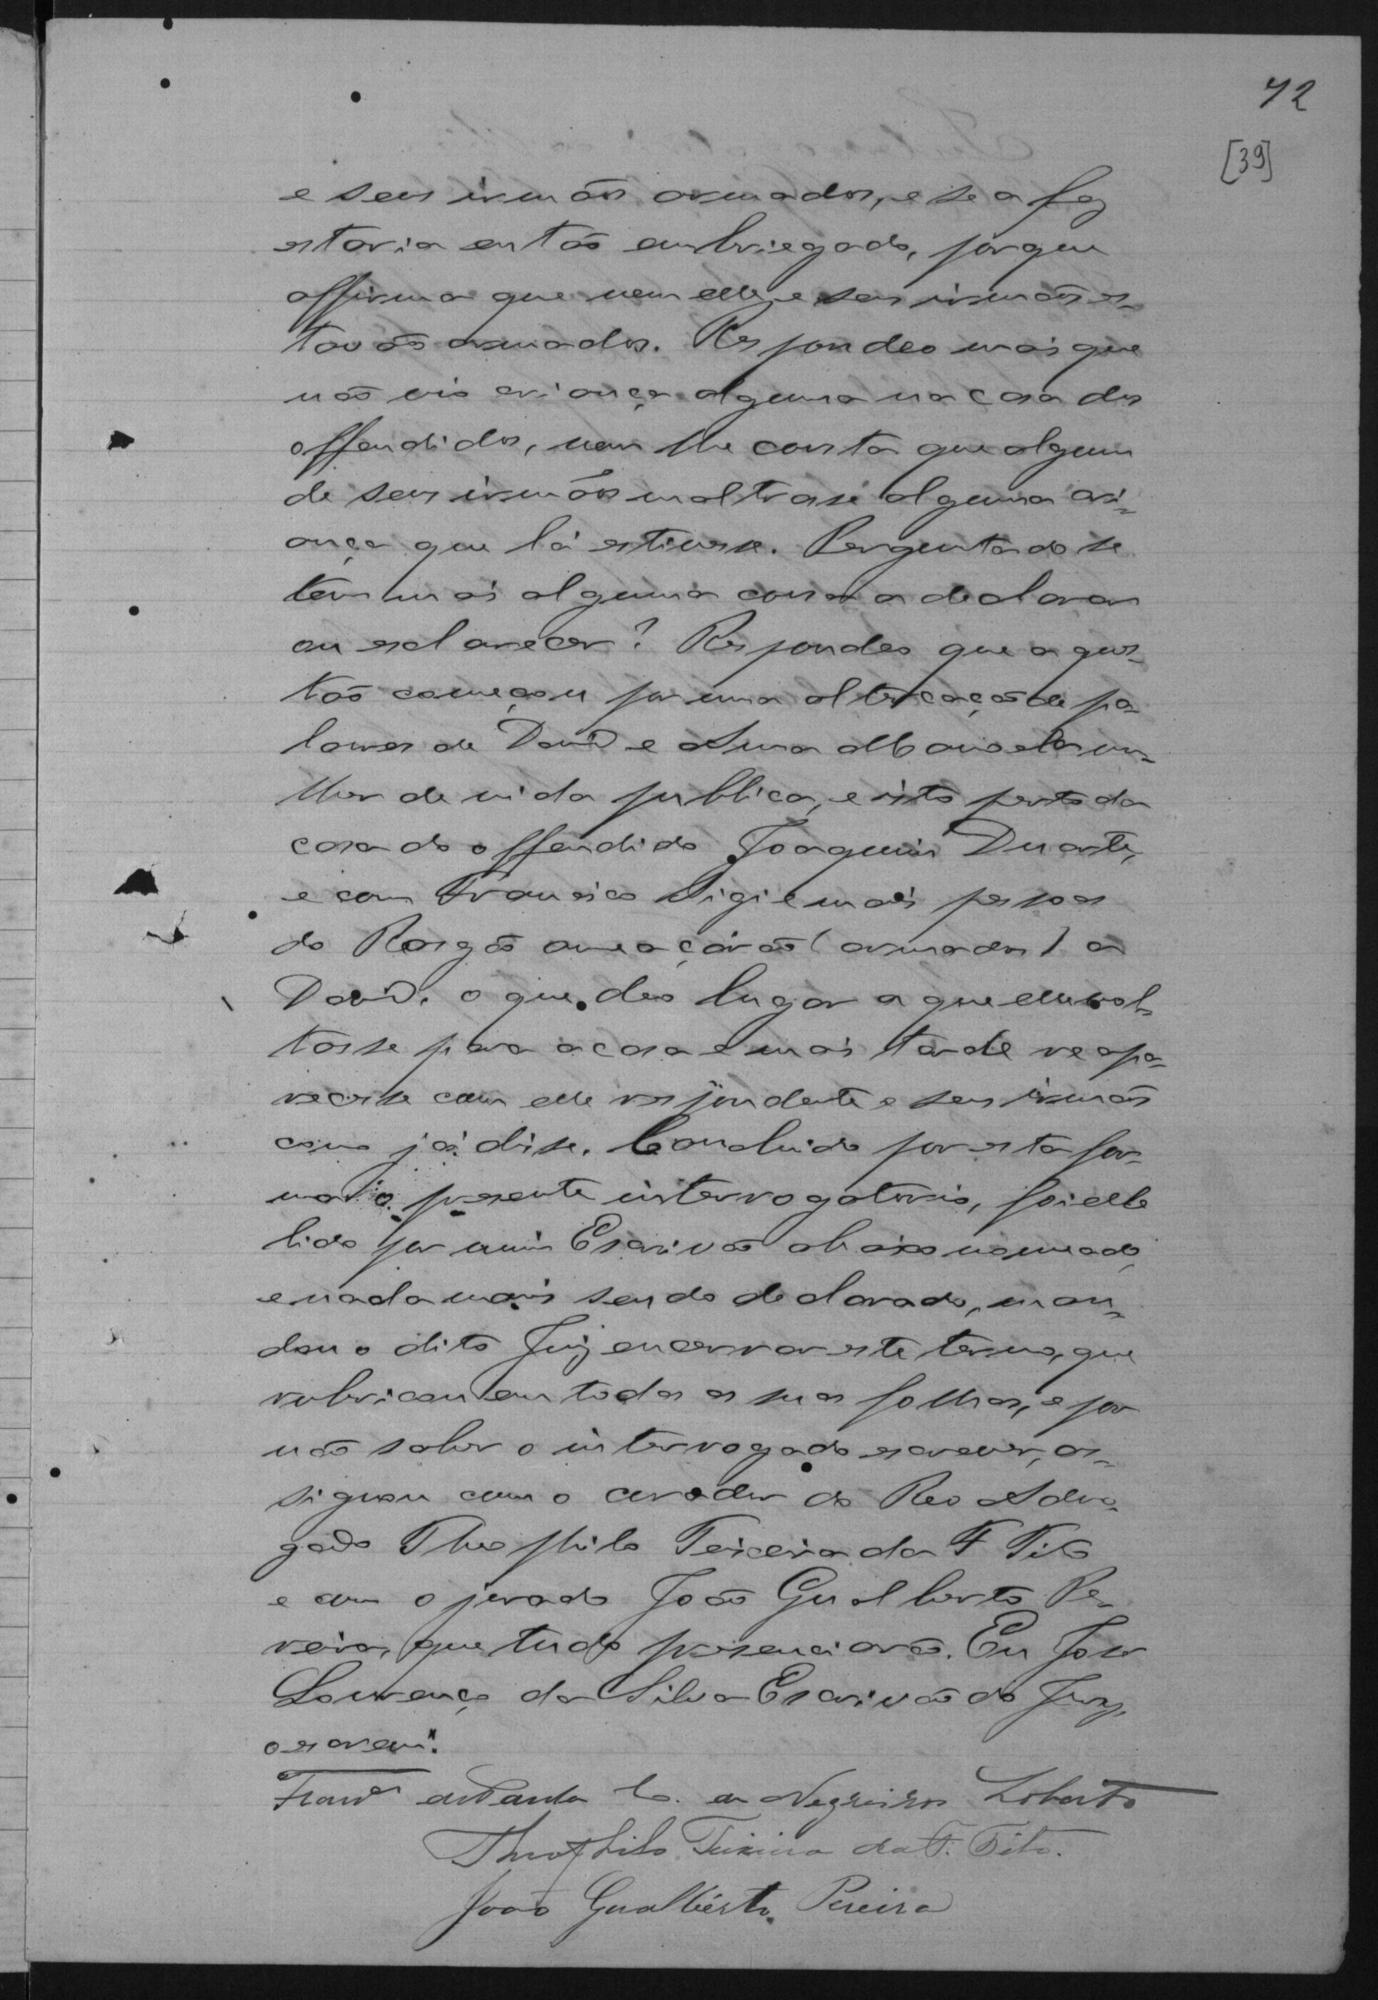 42
[39]
e seus irmãos armados, e se a fez
estaria então embriegado, porque
affirma que nem elle e seus irmãos es-
tavão armados. Respondeo mais que
não vio criança alguma na casa dos
offendidos, nem lhe consta que algum
de seus irmãos maltrase alguma cri-
ança que lá estivesse. Perguntado se
tem mais alguma cousa a declarar
ou esclarecer? Respondeo que a ques-
tão começou por uma altercação de pa-
lavras de David e Anna mu-
lher de vida publica, e isto perto da
casa do offendido Joaquim Duarte,
e com Francisco Gigi e mais pessoas
do Rasgão ameaçárão (armados) a
David, o que deo lugar a que elle vol-
tasse para a casa e mais tarde reapa-
recesse com elle respondente e seus irmãos
como já disse. Concluido por esta for-
ma o presente interrogatorio, foi elle
lido por mim Escrivão abaixo nomeado,
e nada mais sendo declarado, man-
dou o dito Juiz encerrar este termo, que
rubricou em todas as suas folhas, e por
não saber o interrogado escrever, as-
signou com o curador do Reo Advo-
gado Theophilo Teixeira da F. Tito
e com o jurado João Gualberto Pe-
reira, que tudo presenciarão. Eu José
Lourenço da Silva Escrivão do Jury,
o escrevi.
Franco de Paula C. de Negreiros Lobato
Theophilo Teixeira da F. Tito.
João Gualberto Pereira